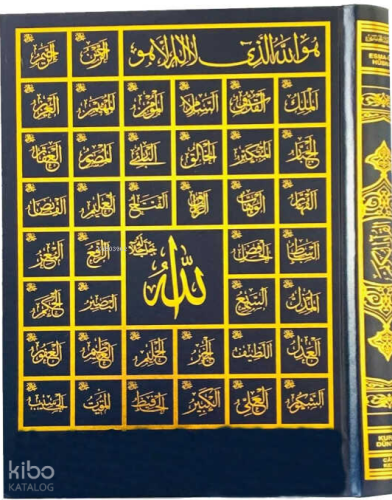 هو الله الذي لا اله الا هو الرحمن الرحيم
الملك القدوس السلام المؤمن المهيمن العزيز
الجبار المتكبر الخالق البارئ المصور الغفار
القهار الوهاب الرزاق الفتاح العليم القابض
الباسط الخافض الرافع المعز
الله جل جلاله
المذل السميع البصير الحكم
العدل اللطيف الخبير الحليم العظيم الغفور
الشكور العلي الكبير الحفيظ المقيت الحسيب
kibo
KATALOG